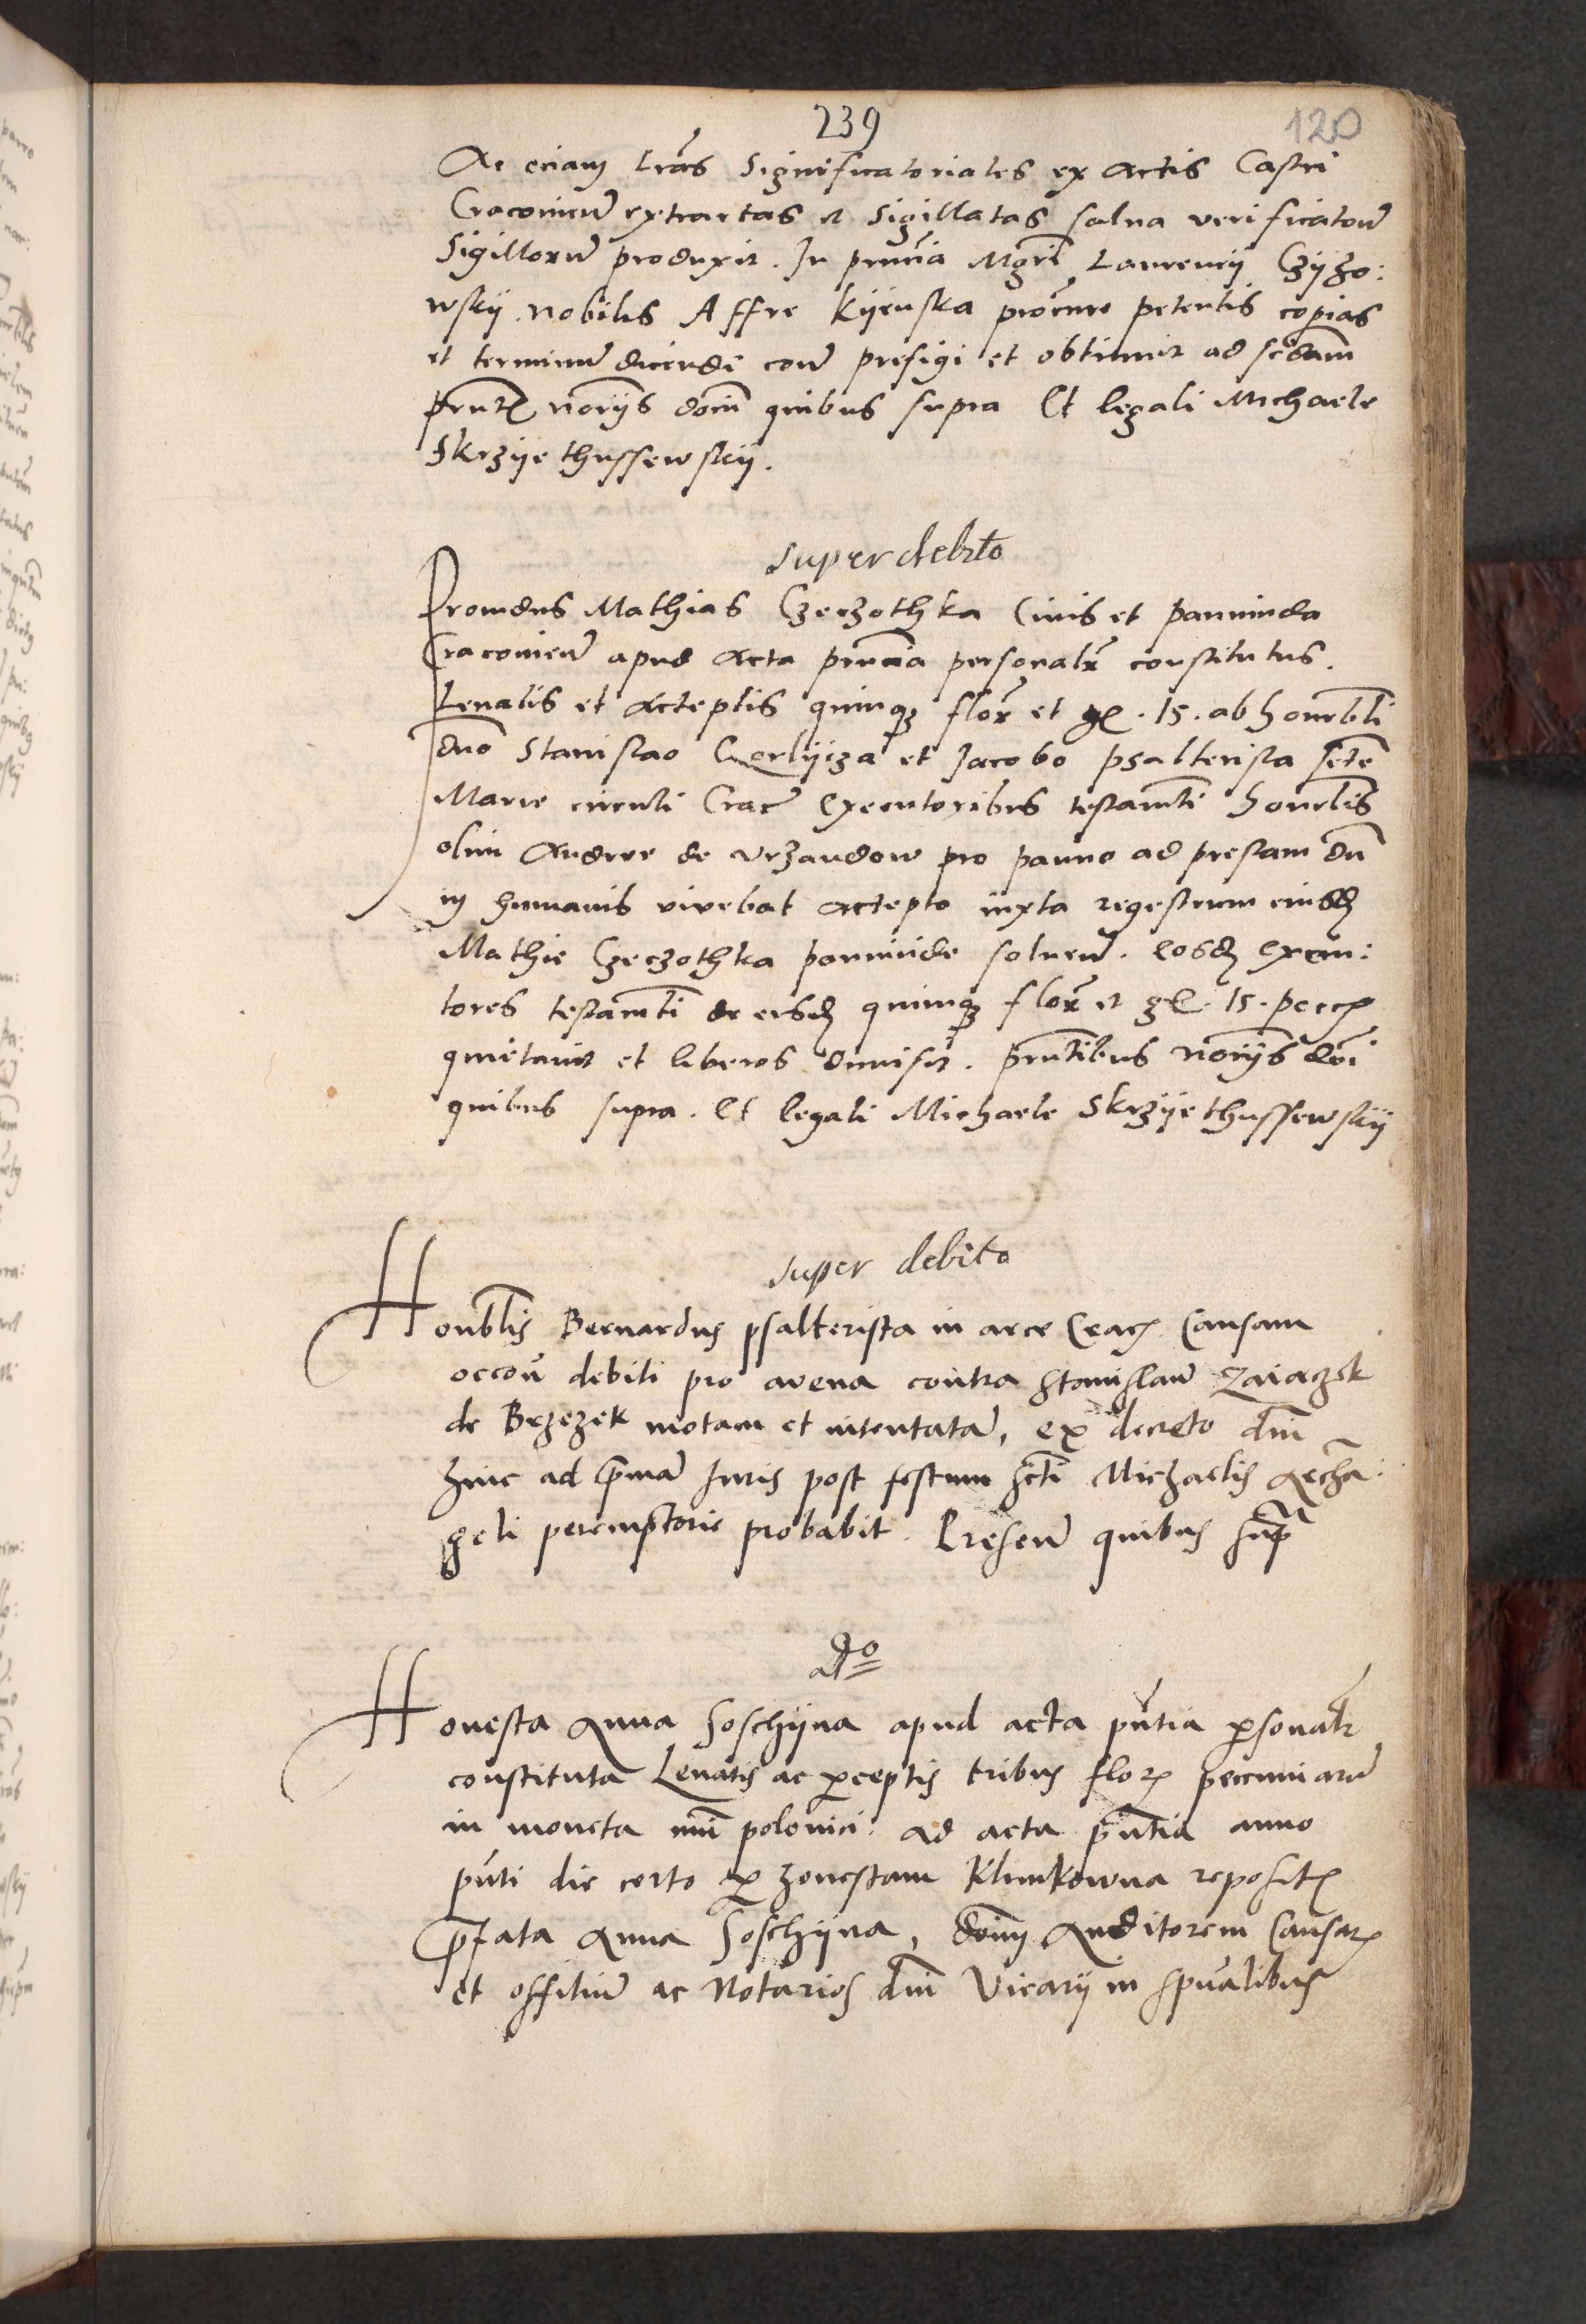 239
120
Ac eciam lr̃as Significatoriales ex Actis Castri
Cracovien̄ extractas et Sigillatas salva verificaton̄
Sigillorū produxit. In pn̄cia Mgri Laurencij Czyzo:
wskij nobilis Affre Kijenska procure petentis copias
et terminū dicendi con̄ presigi et obtinuit ad scdam
pn̄tꝭ nōrijs dom̄ quibus supra Et legali Michaele
Skrzijethussewskij.
super debito
Providus Mathias Czeczothka Civis et pannicida
Cracovien̄ apud Acta pn̄cia personalr̃ constitutus.
Levatis et Acceptis quinqꝫ flor̃ et gꝭ. 15. ab honorbli
dno Stanislao Gorlijcza et Jacobo psalterista scte
Marie circuli Crac̄ Executoribus testamti honorblis
olim Andree de Vrzandow pro panno ad prestam dū
in humanis vivebat Accepto iuxta regestrum eiusdꝫ
Mathie Czeczothka pannicide soluen̄. eosdꝫ Execu:
tores testamti de eisdꝫ quinqꝫ flor̃ et gꝭ. 15. pccꝭ
quietavit et liberos dimisit. pn̄tibus nōrijs dom̄
quibus supra. Et legali Michaele Skrzijethussewskij
super debito
Honorblis Bernardus psalterista in arce Cracꝭ Causam
occon̄ debiti pro avena contra Stanislaū Zaiaczek
de Brzezek motam et intentatā, ex decreto dn̄i
hinc ad p̄mā Juris post festum scti Michaelis Archā:
geli peremptorie probabit. Presen̄ quibus sup̄ᵃ
Do
Honesta Anna Soschijna apud acta pn̄tia ꝑsonalr̃
constituta Levatis ac ꝑceptis tribus florꝭ pecuniarū
in moneta nri polonici ad acta pn̄tia anno
pn̄ti die certo ꝑ honestam Klimkowna repositꝭ
p̄fata Anna Soschijna, dom̄ Auditorem Causarꝭ
et officiū ac Notarios dn̄i Vicarij in spūalibus